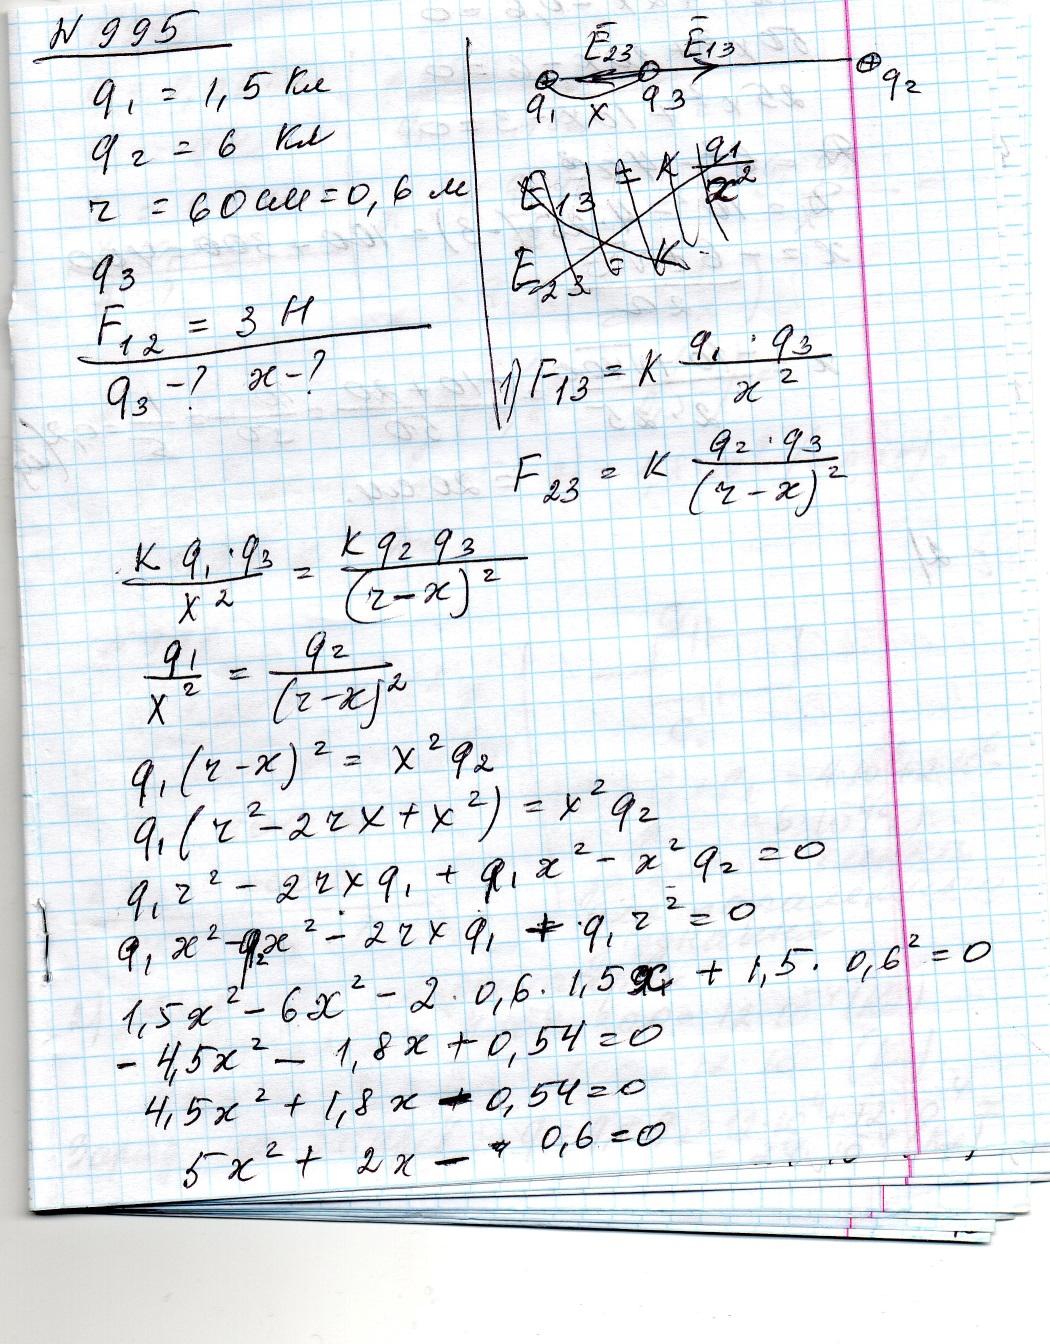 N 995
q₁ = 1,5 Кл
q₂ = 6 Кл
r = 60 см = 0,6 м
q₃
F₁₂ = 3 Н
q₃ - ? x - ?
E̅₂₃ E̅₁₃
q₁ x q₃ q₂
E₁₃ = K q₁/x²
E₂₃ = K
1) F₁₃ = K (q₁ · q₃)/x²
F₂₃ = K (q₂ · q₃)/(r - x)²
(K q₁ · q₃)/x² = (K q₂ q₃)/(r - x)²
q₁/x² = q₂/(r - x)²
q₁(r - x)² = x² q₂
q₁(r² - 2rx + x²) = x² q₂
q₁r² - 2rxq₁ + q₁x² - x²q₂ = 0
q₁x² - q₂x² - 2rxq₁ + q₁r² = 0
1,5x² - 6x² - 2 · 0,6 · 1,5x + 1,5 · 0,6² = 0
- 4,5x² - 1,8x + 0,54 = 0
4,5x² + 1,8x - 0,54 = 0
5x² + 2x - 0,6 = 0